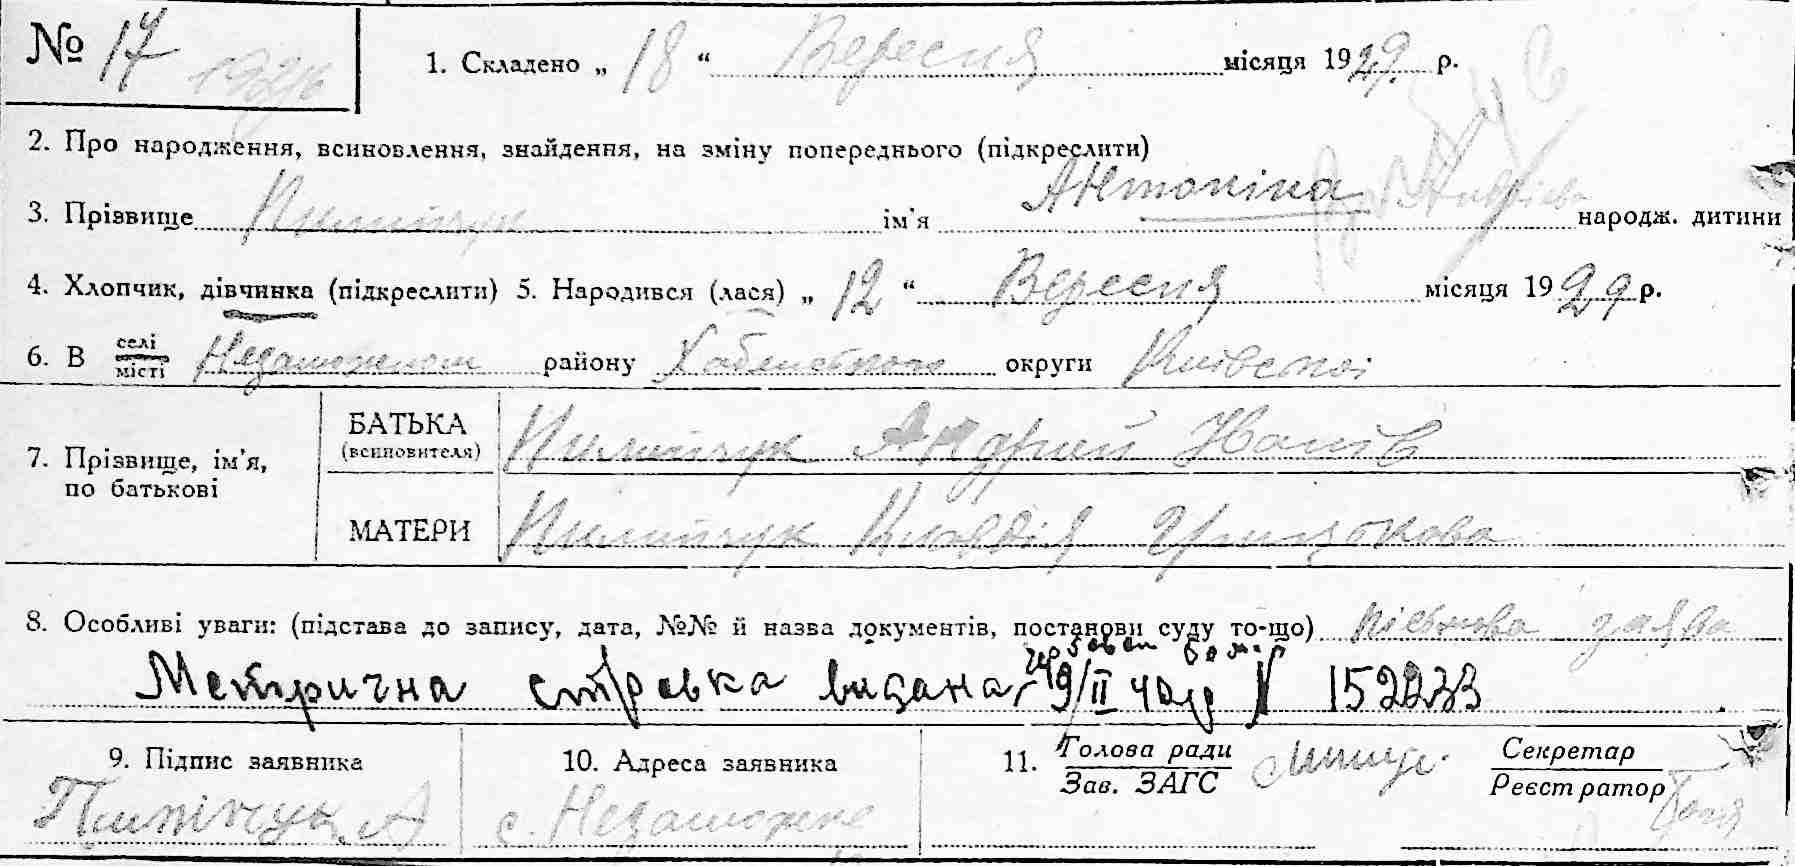 № 17 1. Складено „ 18 “ Вересня місяця 1929. р.
2. Про народження, всиновлення, знайдення, на зміну попереднього (підкреслити)
3. Прізвище Пилипчук ім'я Антоніна народж. дитини
4. Хлопчик, дівчинка (підкреслити) 5. Народився (лася) „ 12 “ Вересня місяця 1929 р.
6. В селі місті Незаможном району Хабенського округи Київської
7. Прізвище, ім'я, по батькові
БАТЬКА (всиновителя) Пилипчук Андрий
МАТЕРИ Пилипчук Клавдія
8. Особливі уваги: (підстава до запису, дата, №№ й назва документів, постанови суду то-що) письмова заява
Метрична видана 9/II 152233
9. Підпис заявника 10. Адреса заявника 11. Голова ради Зав. ЗАГС Секретар Реєстратор
Пилипчук А с. Незаможне